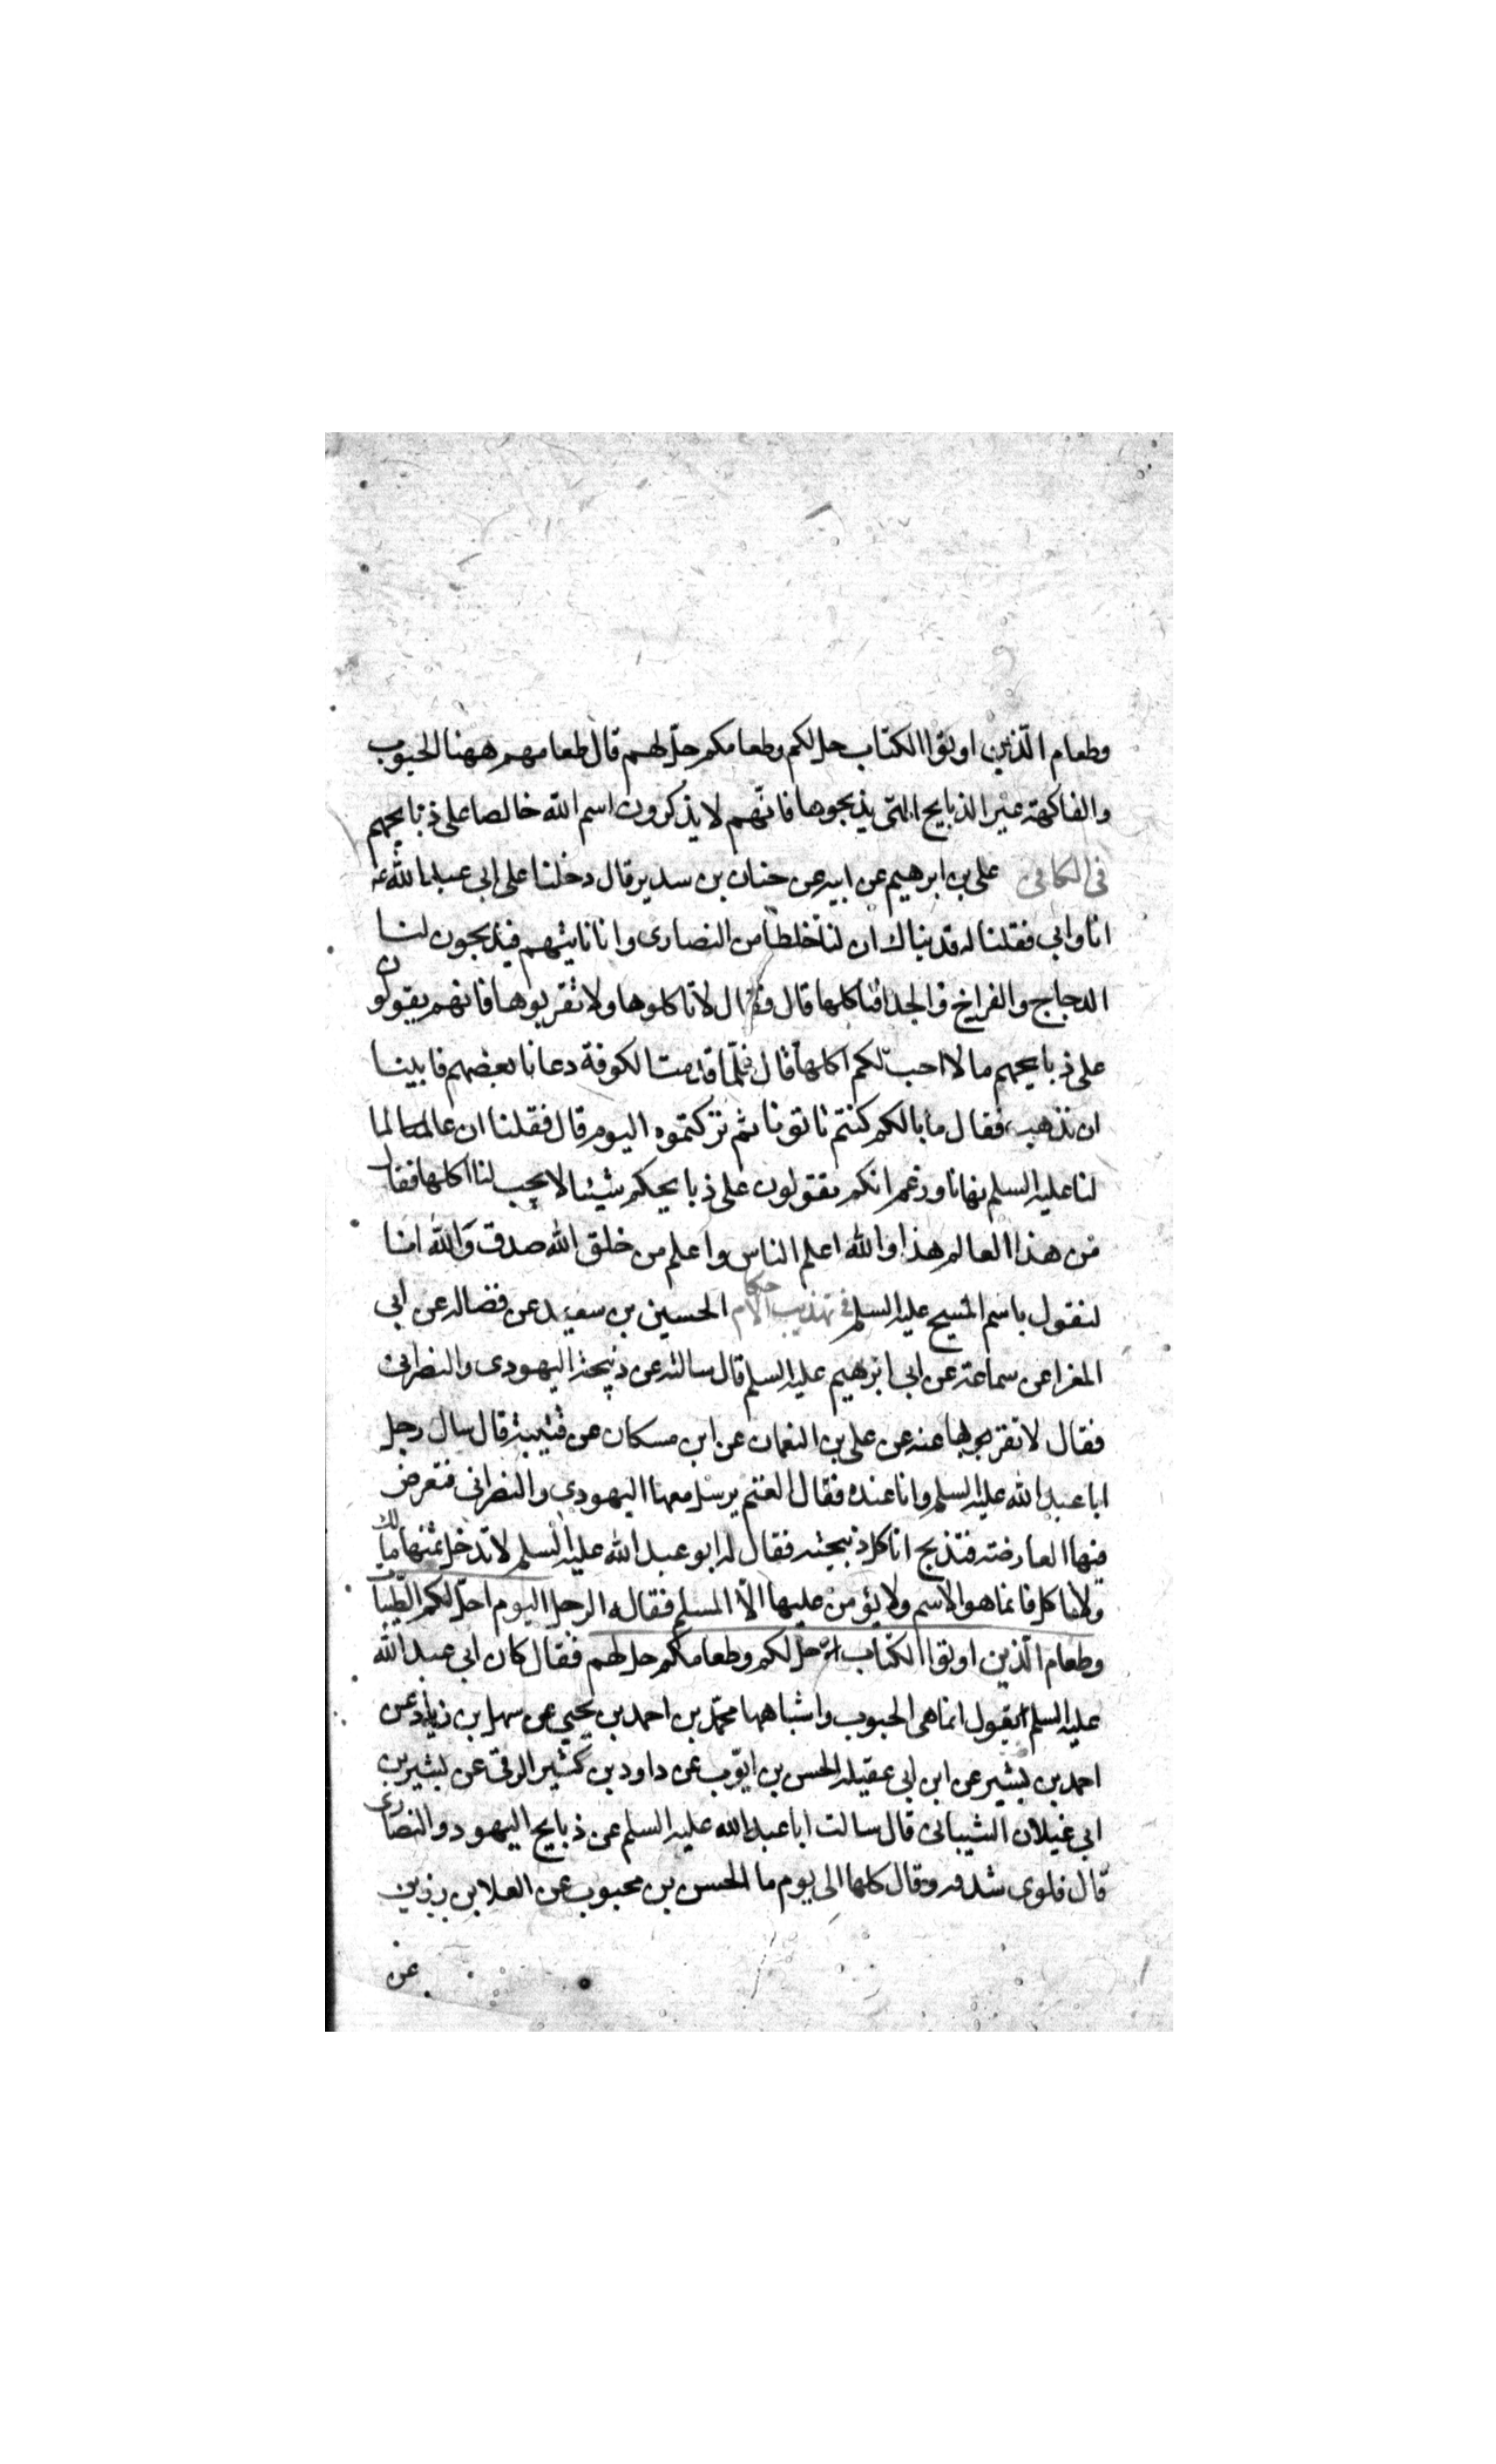 وطعام الّذين اوتوا الكتاب حل لكم وطعامكم حلّ لهم قال طعامهم ههنا الحبوب
والفاكهة غير الذبايح التى يذبحوها فانّهم لا يذكرون اسم الله خالصا على ذبايحهم
فى الكافى على بن ابرهيم عن ابيه عن حنان بن سدير قال دخلنا على ابى عبد الله ع
انا وابى فقلنا له فديناك ان لنا خلطا من النصارى وانا ناتيهم فيذبحون لنا
الدجاج والفراخ والجدا فناكلها قال فقال لا تاكلوها ولا تقربوها فانهم يقولون
على ذبايحهم ما لا احب لكم اكلها قال فلمّا قدمنا الكوفة دعانا بعضهم فابينا
ان نذهب فقال ما بالكم كنتم تاتونا ثم تركتموه اليوم قال فقلنا ان عالما
لنا عليه السلم نهانا وزعم انكم تقولون على ذبايحكم شيئا لا يحب لنا اكلها فقال
من هذا العالم هذا والله اعلم الناس واعلم من خلق الله صدق والله انا
لنقول باسم المسيح عليه السلم فى تهذيب الاحكام الحسين بن سعيد عن فضاله عن ابى
المغرا عن سماعة عن ابى ابرهيم عليه السلم قال سالته عن ذبيحة اليهودى والنصرانى
فقال لا تقربوها عنه عن على بن النعمان عن ابن مسكان عن قتيبة قال سال رجل
ابا عبد الله عليه السلم وانا عنده فقال الغنم يرسل معها اليهودى والنصرانى فتعرض
فيها العارضة فتذبح اناكل ذبيحته فقال له ابو عبد الله عليه السلم لا تدخل ثمنها مالك
ولا تاكل فانما هو الاسم ولا يؤمن عليها الّا المسلم فقال له الرجل اليوم احلّ لكم الطّيبات
وطعام الّذين اوتوا الكتاب حل لكم وطعامكم حل لهم فقال كان ابى عبد الله
عليه السلم يقول انما هى الحبوب واشباهها محمّد بن احمد بن يحيى عن سهل بن زياد عن
احمد بن بشير عن ابن ابى عقيلة الحسن بن ايّوب عن داود بن كثير الرقى عن بشير بن
ابى غيلان الشيبانى قال سالت ابا عبد الله عليه السلم عن ذبايح اليهود والنصارى
قال فلوى شدقه وقال كلها الى يوم ما الحسن بن محبوب عن العلا بن رزين
عن